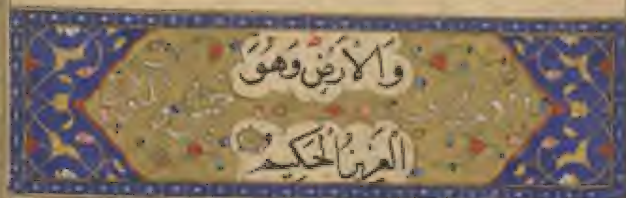 وَالْاَرْضِ وَهُوَ
الْعَزِيزُ الْحَكِيمُ